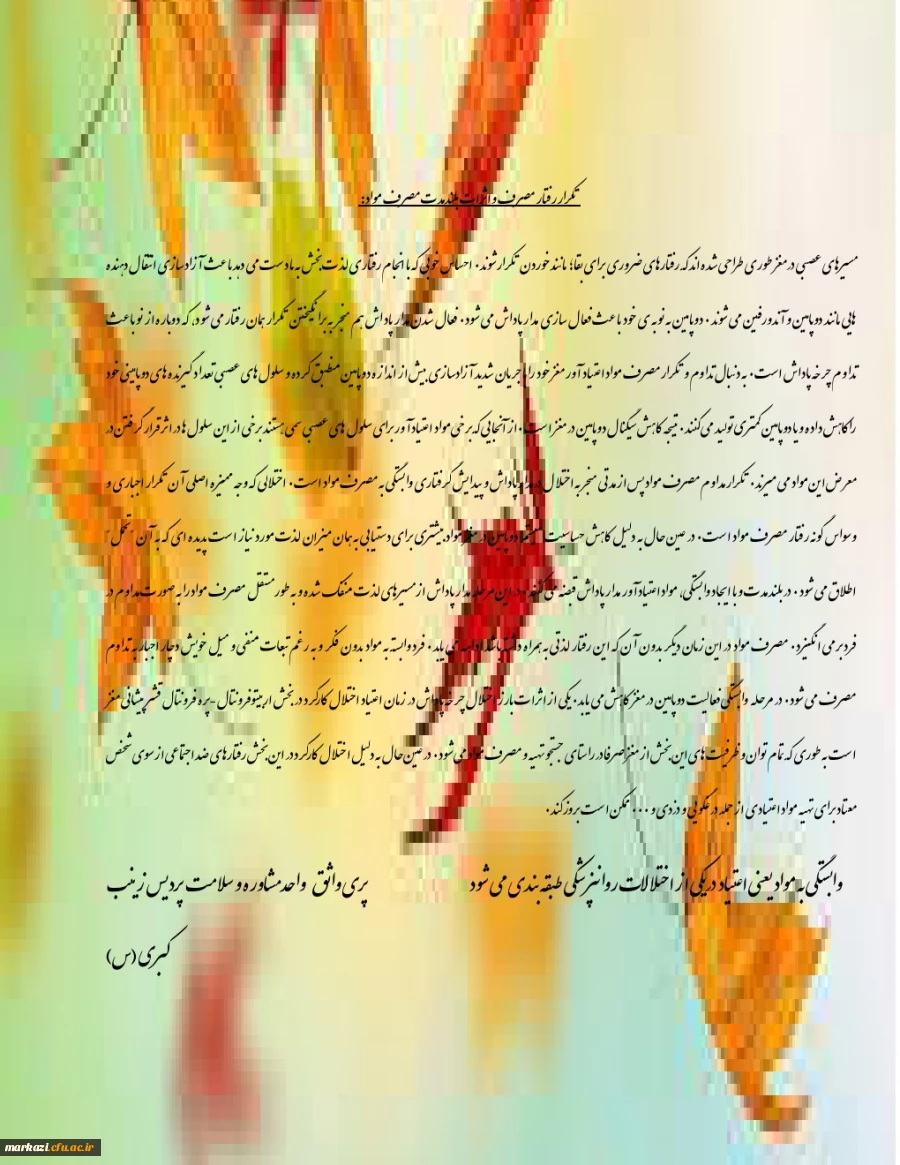 تکرار رفتار مصرف و اثرات بلندمدت مصرف مواد:
مسیرهای عصبی در مغز طوری طراحی شده اند که رفتارهای ضروری برای بقا؛ مانند خوردن تکرار شوند. احساس خوبی که با انجام رفتاری لذت بخش به ما دست می دهد باعث آزادسازی انتقال دهنده
هایی مانند دوپامین و آندورفین می شوند. دوپامین به نوبه ی خود باعث فعال سازی مدار پاداش می شود. فعال شدن مدار پاداش هم منجر به برانگیختن تکرار همان رفتار می شود، که دوباره از نو باعث
تداوم چرخه پاداش است. به دنبال تداوم و تکرار مصرف مواد اعتیادآور مغز خود را با جریان شدید آزادسازی بیش از اندازه دوپامین منطبق کرده و سلول های عصبی تعداد گیرنده های دوپامینی خود
را کاهش داده و یا دوپامین کمتری تولید می کنند. نتیجه کاهش سیگنال دوپامین در مغز است. از آنجایی که برخی مواد اعتیادآور برای سلول های عصبی سمی هستند برخی از این سلول ها در اثر قرار گرفتن در
معرض این مواد می میرند. تکرار مداوم مصرف مواد پس از مدتی منجر به اختلال در مدار پاداش و پیدایش گرفتاری وابستگی به مصرف مواد است. اختلالی که وجه ممیزه اصلی آن تکرار اجباری و
وسواس گونه رفتار مصرف مواد است. در عین حال به دلیل کاهش حساسیت سیستم دوپامین در مغز مواد بیشتری برای دستیابی به همان میزان لذت مورد نیاز است پدیده ای که به آن "تحمل"
اطلاق می شود. در بلندمدت و با ایجاد وابستگی، مواد اعتیادآور مدار پاداش قبضه می کنند. در این مرحله مدار پاداش از مسیرهای لذت منفک شده و به طور مستقل مصرف مواد را به صورت مداوم در
فرد برمی انگیزد. مصرف مواد در این زمان دیگر بدون آن که این رفتار لذتی به همراه داشته باشد ادامه می یابد. فرد وابسته به مواد بدون فکر و به رغم تبعات منفی و میل خویش دچار اجبار به تداوم
مصرف می شود. در مرحله وابستگی فعالیت دوپامین در مغز کاهش می یابد. یکی از اثرات بارز اختلال چرخه پاداش در زمان اعتیاد اختلال کارکرد در بخش اربیتوفرونتال -پره فرونتال قشر پیشانی مغز
است به طوری که تمام توان و ظرفیت های این بخش از مغز صرفا در راستای جستجو تهیه و مصرف مواد می شود. در عین حال به دلیل اختلال کارکرد در این بخش رفتارهای ضد اجتماعی از سوی شخص
معتاد برای تهیه مواد اعتیادی از جمله دروغگویی و دزدی و ... ممکن است بروز کند.
وابستگی به مواد یعنی اعتیاد در یکی از اختلالات روانپزشکی طبقه بندی می شود پری واثق واحد مشاوره و سلامت پردیس زینب
کبری (س)
markazi.cfu.ac.ir